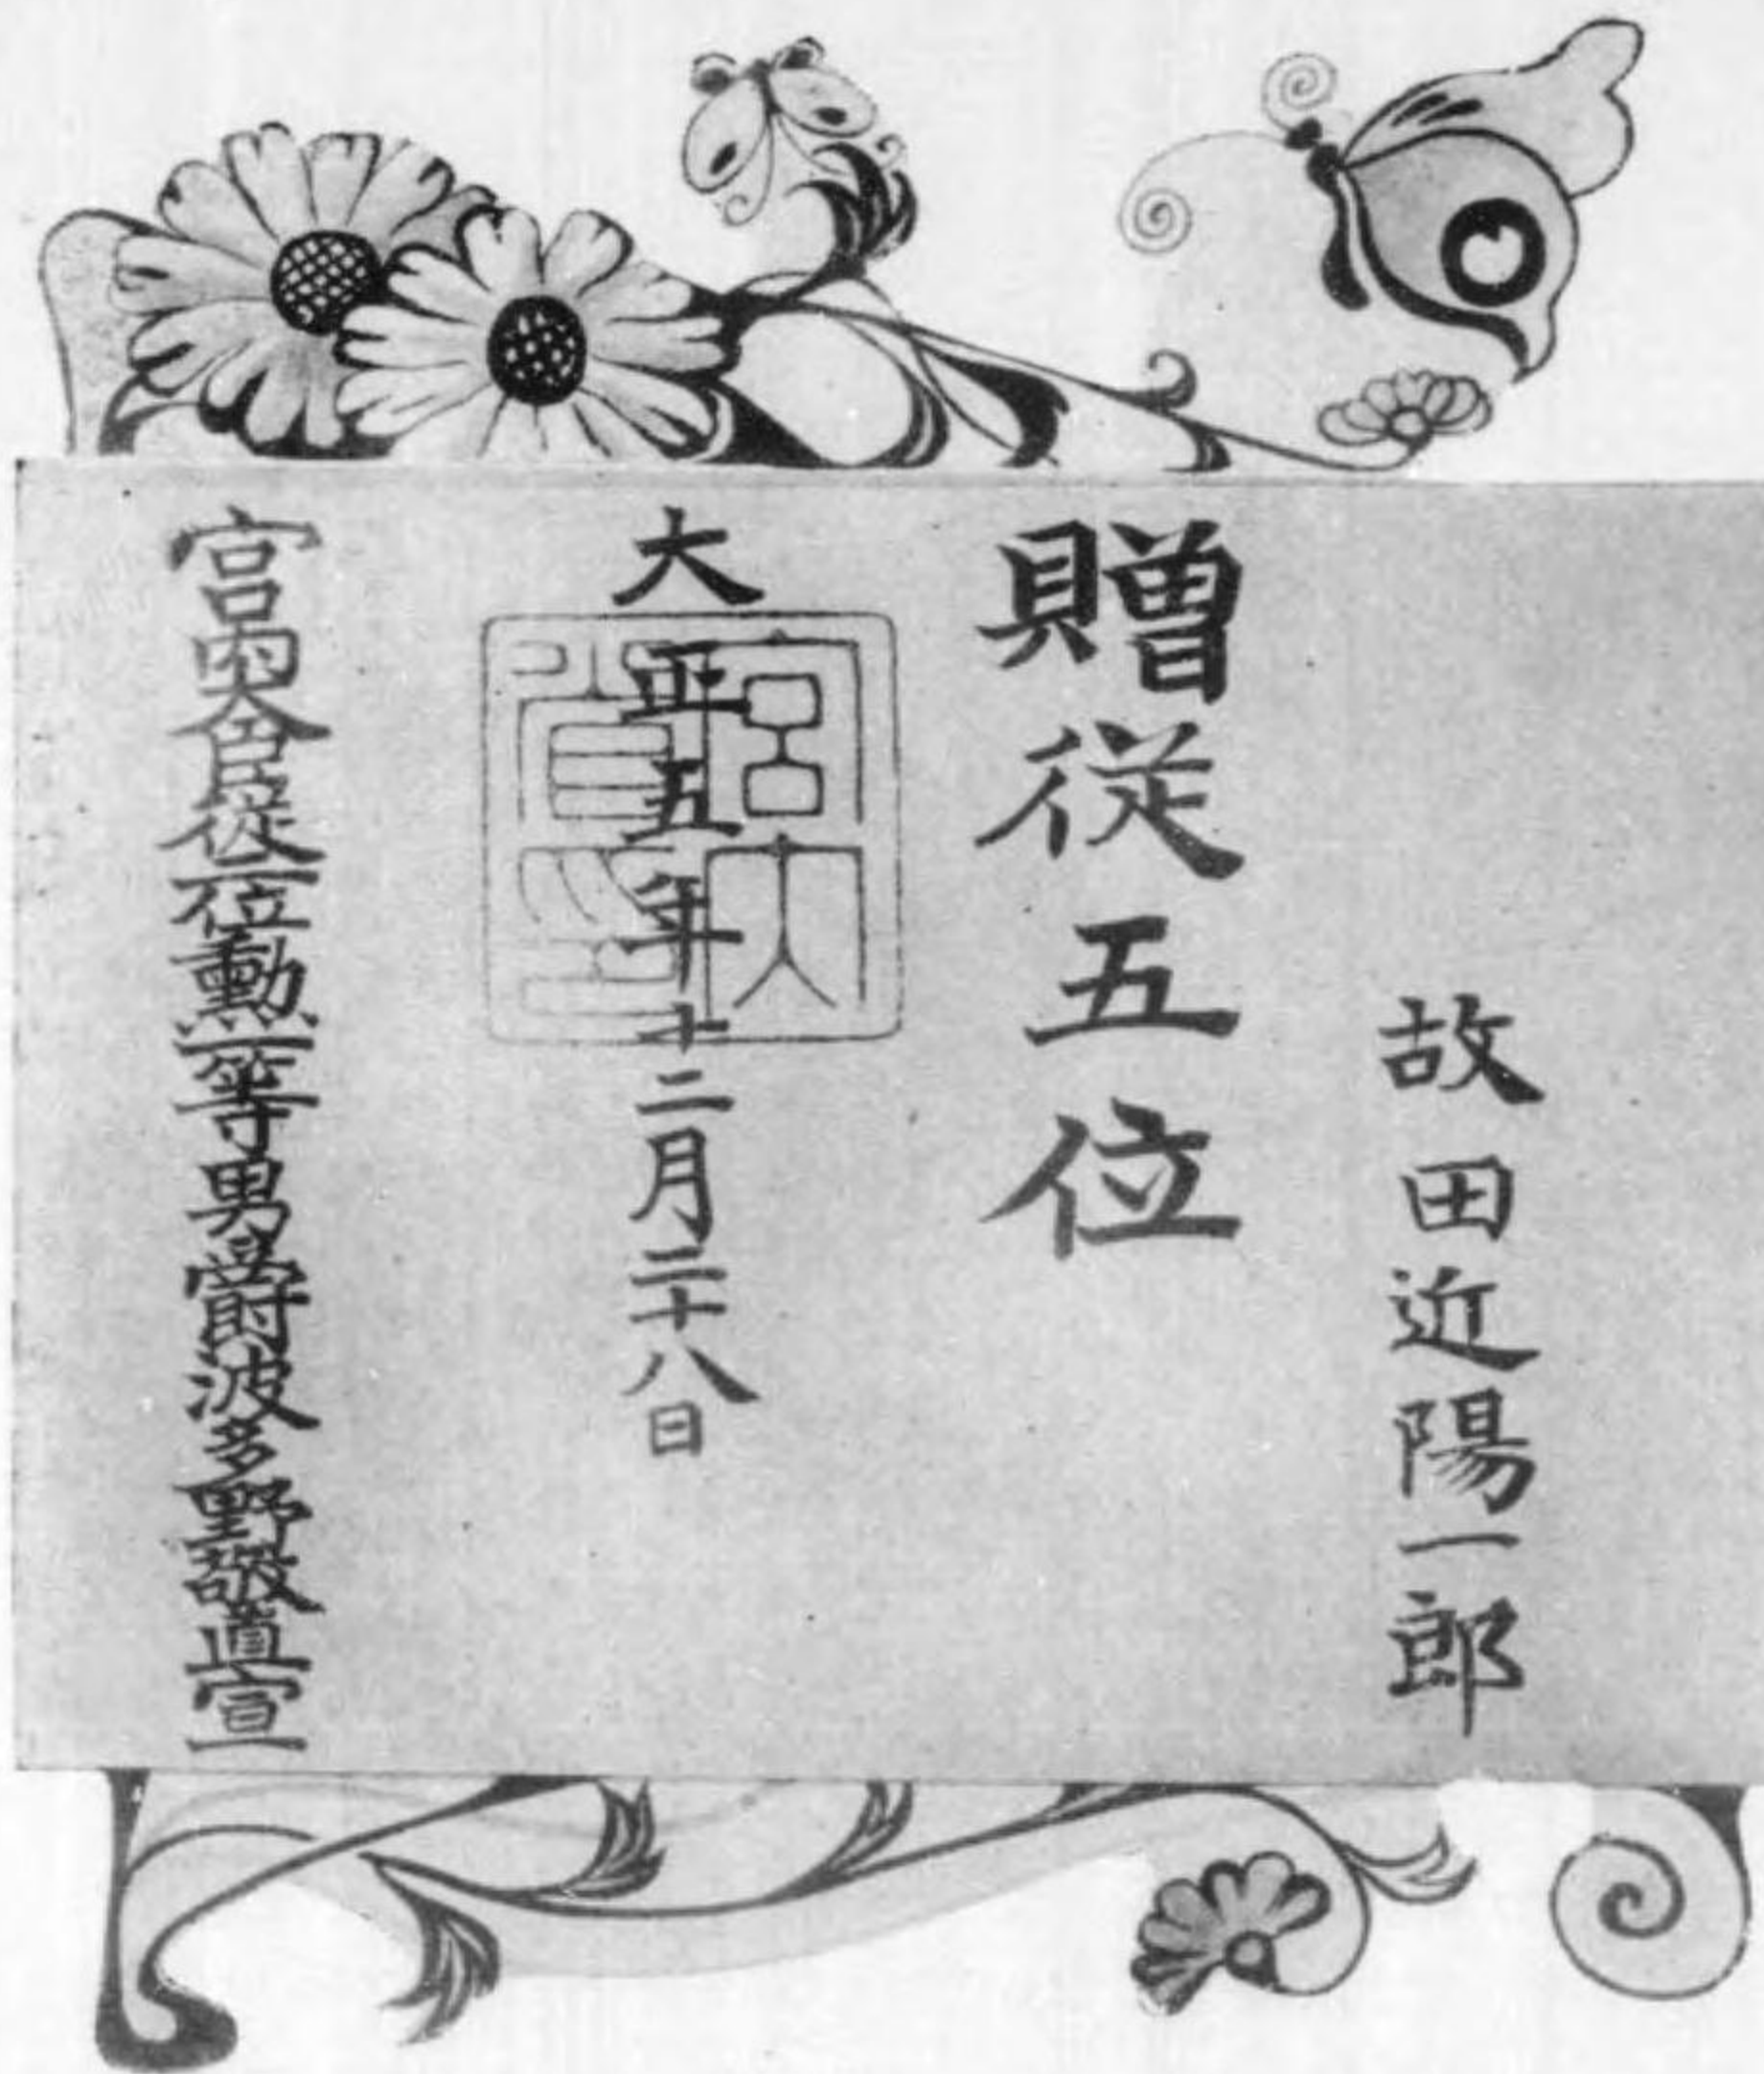 故田近陽一郎
贈従五位
大正五年十二月二十八日
宮内省印
宮内大臣従二位勲一等男爵波多野敬直宣